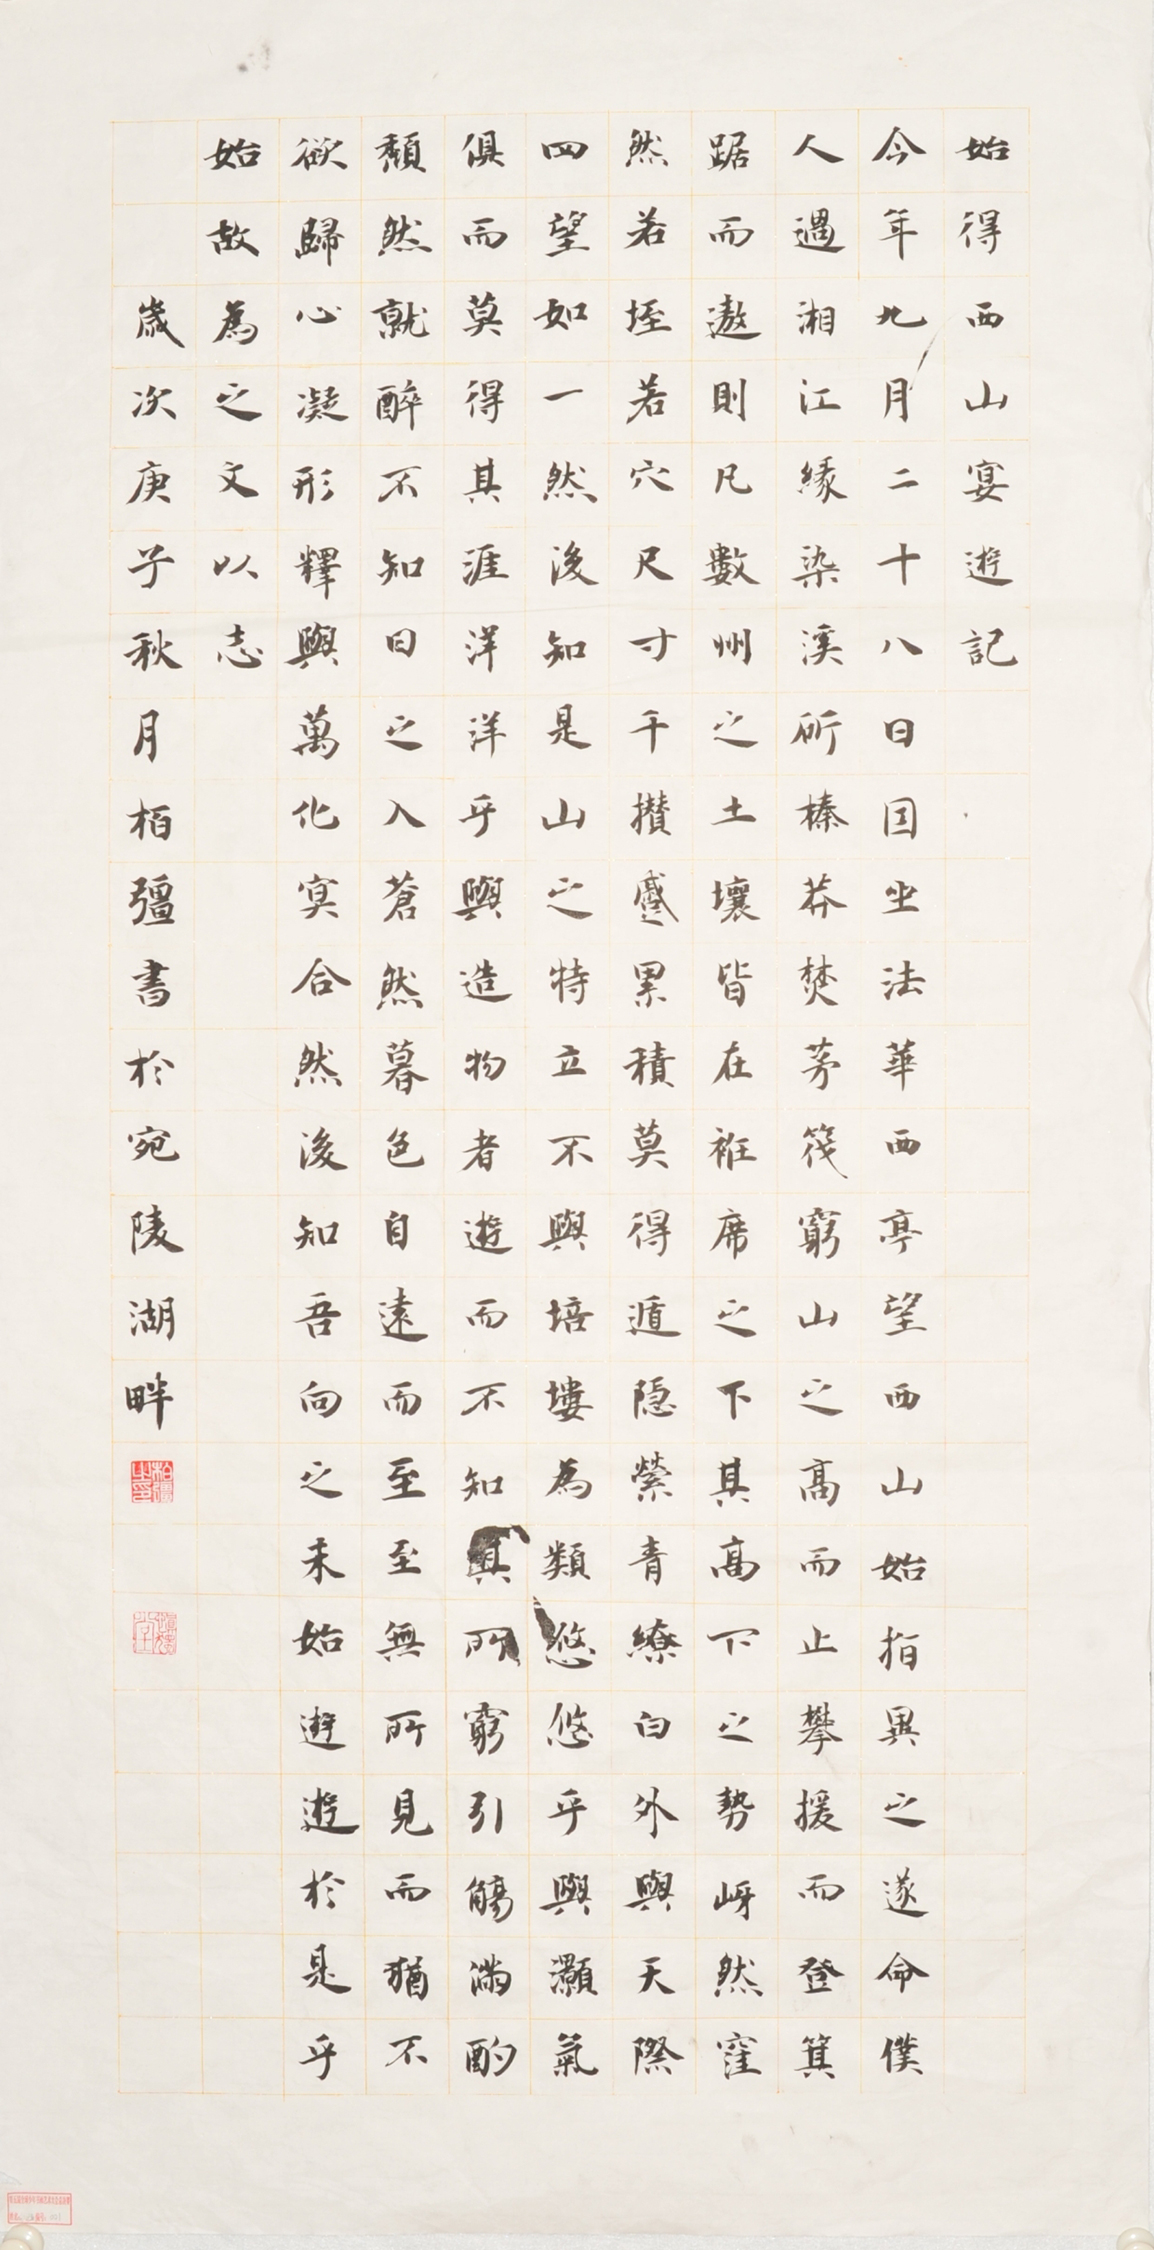 始得西山宴遊記
今年九月二十八日因坐法華西亭望西山始指異之遂命僕
人過湘江緣染溪斫榛莽焚茅筏窮山之高而止攀援而登箕
踞而遨則凡數州之土壤皆在袵席之下其高下之勢岈然窪
然若垤若穴尺寸千攢蹙累積莫得遁隱縈青繚白外與天際
四望如一然後知是山之特立不與培塿為類悠悠乎與灝氣
俱而莫得其涯洋洋乎與造物者遊而不知其所窮引觴滿酌
頹然就醉不知日之入蒼然暮色自遠而至至無所見而猶不
欲歸心凝形釋與萬化冥合然後知吾向之未始遊遊於是乎
始故為之文以志
歲次庚子秋月栢彊書於宛陵湖畔